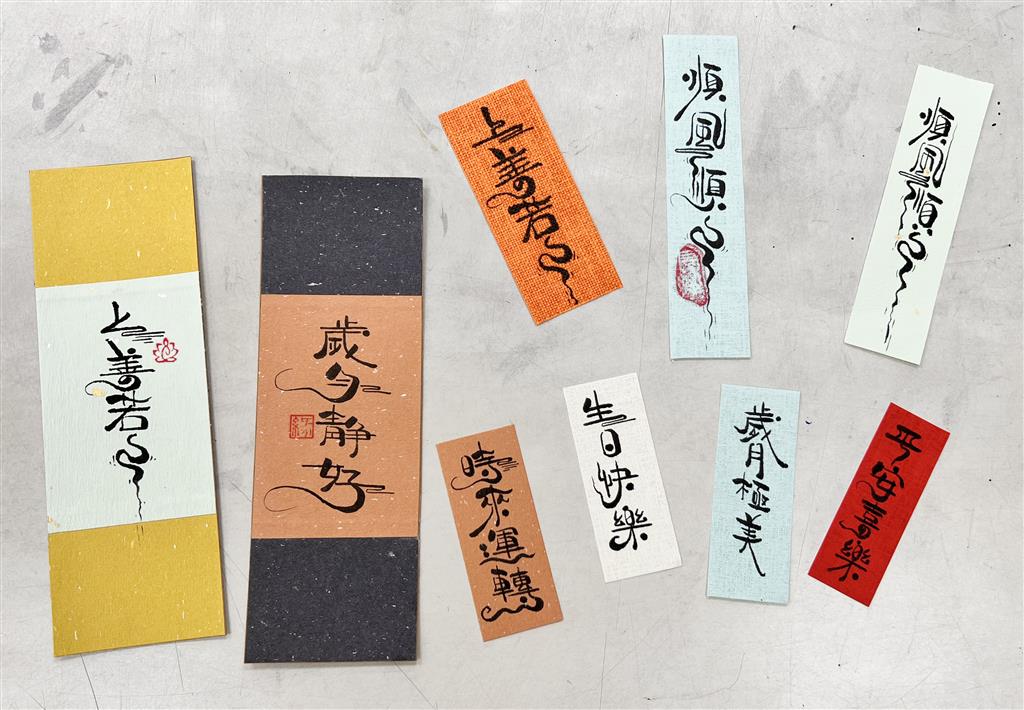 上善若水
歲月靜好
上善若水
順風順水
順風順水
時來運轉
生日快樂
歲月極美
平安喜樂